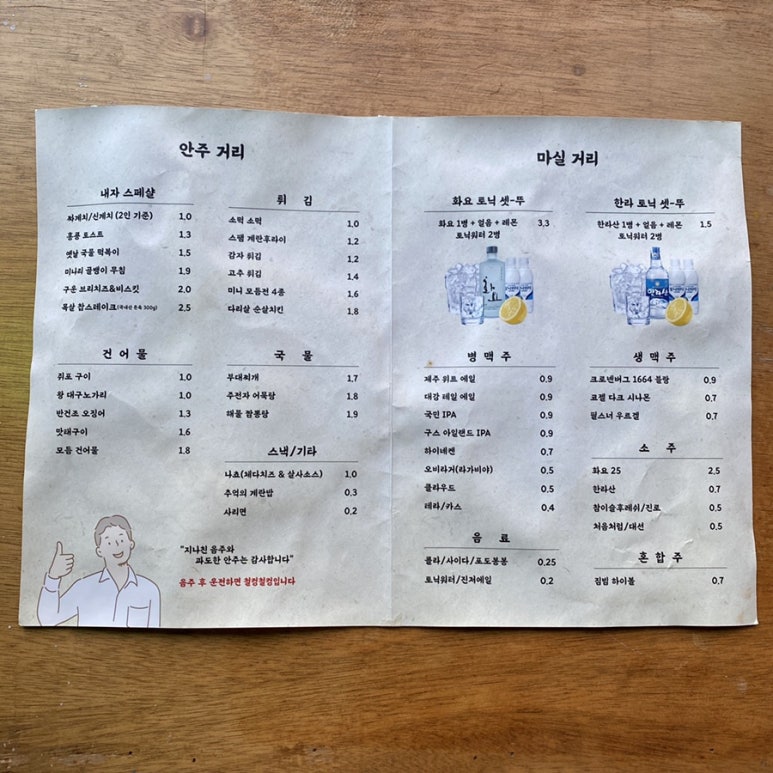 안주 거리
내자 스페샬
짜계치/신계치 (2인 기준) 1,0
홍콩 토스트 1.3
옛날 국물 떡볶이 1,5
미나리 골뱅이 무침 1,9
구운 브리치즈&비스킷 2,0
목살 찹스테이크(국내산 돈육 300g) 2,5
튀 김
소떡 소떡 1,0
스팸 계란후라이 1,2
감자 튀김 1,2
고추 튀김 1,4
미나 모듬전 4종 1,6
다리살 순살치킨 1,8
건 어 물
쥐포 구이 1,0
왕 대구노가리 1,0
반건조 오징어 1,3
맛태구이 1,6
모듬 건어물 1,8
국 물
부대찌개 1,7
주전자 어묵탕 1,8
해물 짬뽕탕 1,9
스낵/기타
나쵸(체다치즈 & 살사소스) 1,0
추억의 계란밥 0,3
사리면 0,2
"지나친 음주와
과도한 안주는 감사합니다"
음주 후 운전하면 철컹철컹입니다
마실 거리
화요 토닉 셋-뚜
화요 1병 + 얼음 + 레몬 3,3
토닉워터 2병
화요
한라 토닉 셋-뚜
한라산 1병 + 얼음 + 레몬 1.5
토닉워터 2병
한라산
병 맥 주
제주 위트 에일 0,9
대강 페일 에일 0,9
국민 IPA 0,9
구스 아일랜드 IPA 0,9
하이네켄 0,7
오비라거(라가비야) 0,5
클라우드 0,5
테라/카스 0,4
음 료
콜라/사이다/포도봉봉 0,25
토닉워터/진저에일 0,2
생 맥 주
크로넨버그 1664 블랑 0,9
코젤 다크 시나몬 0,7
필스너 우르켈 0,7
소 주
화요 25 2,5
한라산 0,7
참이슬후레쉬/진로 0,5
처음처럼/대선 0,5
혼 합 주
짐빔 하이볼 0,7